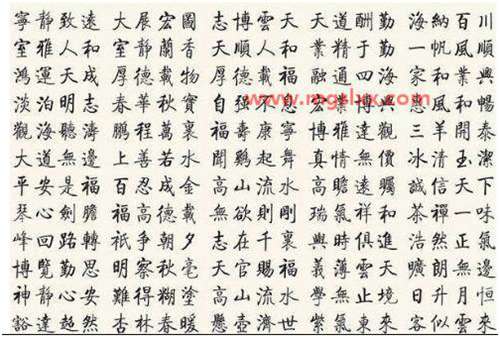 寧靜致遠 大展宏圖 志博雲天 天道酬勤 海納百川
室雅人和 室靜蘭香 順人和 業精于勤 一帆風順
鴻運天成 厚德載物 厚德載福 融通四海 家和業興
淡泊明志 春華秋實 自強不息 宏 惠風和暢
www.mgslxx.com
觀海聽濤 鵬程萬裏 福壽康寧 博雅達觀 三羊開泰
大道無邊 上善若水 聞鷄起舞 真情無價 冰清玉潔
平安是福 百忍成金 高山流水 高瞻遠矚 誠信天下
琴心劍膽 福高德載 無欲則剛 瑞氣祥和 茶禪一味
峰回路轉 祇爭朝夕 志在千裏 與時俱進 浩然正氣
博覽勤思 明察秋毫 天官賜福 義薄雲天 曠朗無邊
神靜心安 難得糊塗 高山流水 學無止境 日升月恒
豁達超然 杏林春暖 懸壺濟世 紫氣東來 客似雲來